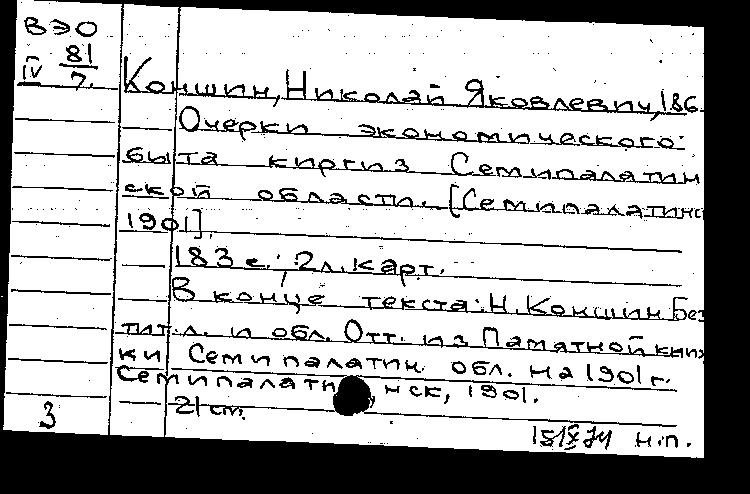 ВЭО
IV 81/7.
Коншин, Николай Яковлевич, 186
Очерки экономического
быта киргиз Семипалатин
ской области. [Семипалатинс
1901].
183 с.; 2 л. карт.
В конце текста: Н. Коншин. Без
тит. л. и обл. Отт. из Памятной книж
ки Семипалатин. обл. на 1901 г.
Семипалатинск, 1901.
21 cm.
3
н.п.